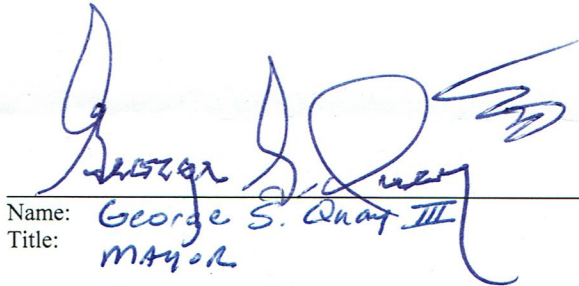 George S. Quay
Name: George S. Quay III
Title: MAYOR